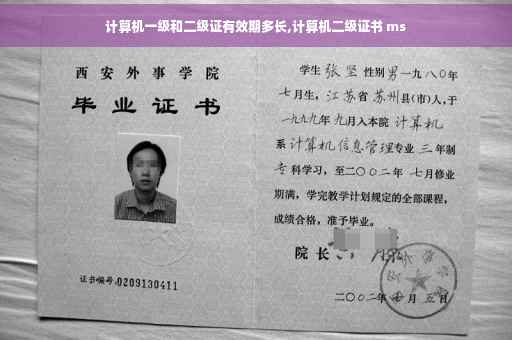 计算机一级和二级证有效期多长,计算机二级证书 ms
西安外事学院
毕业证书
证书编号:0209130411
学生 张坚 性别男一九八〇年
七月生,江苏省苏州县(市)人,于
一九九九年九月入本院 计算机
系计算机信息管理专业 三 年制
专科学习,至二〇〇二年 七月修业
期满,学完教学计划规定的全部课程,
成绩合格,准予毕业。
院长
二〇〇二年 月五日